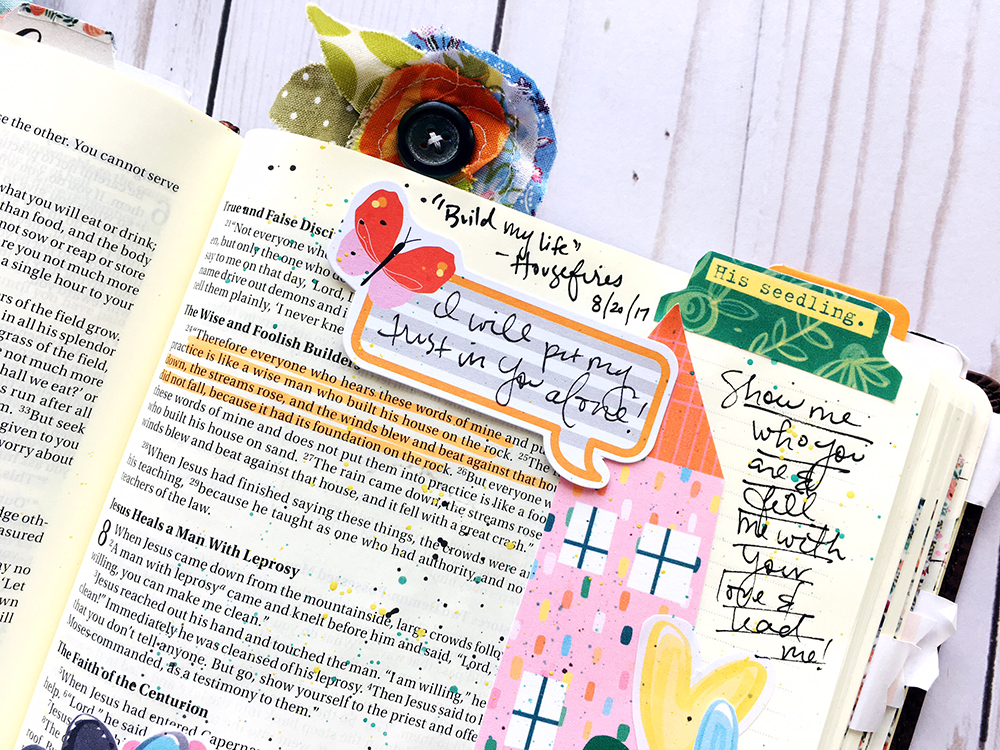 se the other. You cannot serve
what you will eat or drink;
than food, and the body
not sow or reap or store
re you not much more
a single hour to your
ers of the field grow.
in all his splendor
grass of the field,
e not much more
hall we eat?' or
s run after all
m. 33But seek
given to you
worry about
dge oth-
easured
ay no
'Let
own
ill
True and False Disci
21"Not everyone who
en, but only the one who
say to me on that day, 'Lord, L
name drive out demons and i
tell them plainly, 'I never kne
The Wise and Foolish Builders
24"Therefore everyone who hears these words of mine and pu
practice is like a wise man who built his house on the rock. 25The
down, the streams rose, and the winds blew and beat against that ho
did not fall, because it had its foundation on the rock. 26But everyone w
these words of mine and does not put them into practice is like a foo
who built his house on sand. 27The rain came down, the streams rose
winds blew and beat against that house, and it fell with a great crash."
28When Jesus had finished saying these things, the crowds were a
his teaching, 29because he taught as one who had authority, and no
teachers of the law.
Jesus Heals a Man With Leprosy
8 When Jesus came down from the mountainside, large crowds follo
2A man with leprosy came and knelt before him and said, "Lord,
willing, you can make me clean."
3Jesus reached out his hand and touched the man. "I am willing," he
clean!" Immediately he was cleansed of his leprosy. 4Then Jesus said to
that you don't tell anyone. But go, show yourself to the priest and offe
Moses commanded, as a testimony to them."
The Faith of the Centurion
5When Jesus had entered Capern
help. 6"Lord," he said,
"Build my life"
- Housefires
8/20/17
I will put my
trust in You alone!
His seedling.
Show me
who you
are &
fill
me with
your
love &
lead
me!